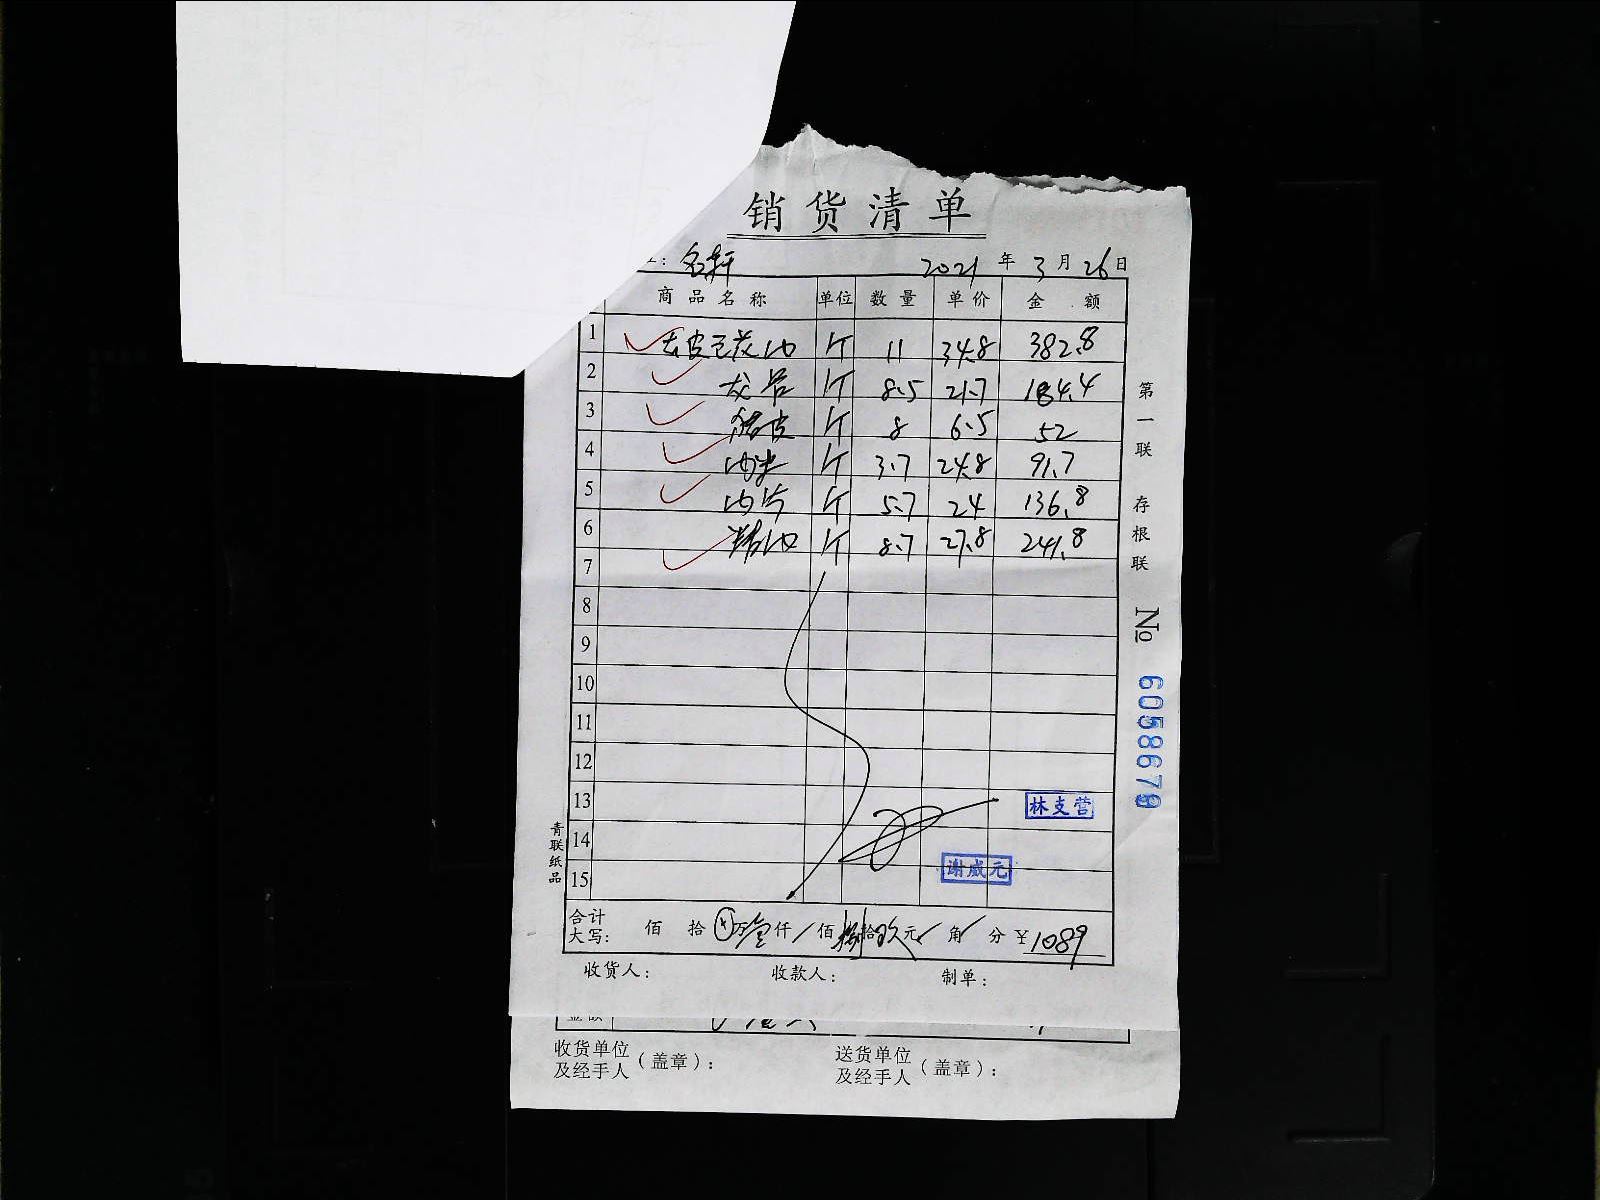 销货清单
：名轩 2021年3月26日
商品名称 单位 数量 单价 金额
1 去皮五花肉 斤 11 34.8 382.8
2 龙骨 斤 8.5 21.7 184.4
3 猪皮 斤 8 6.5 52
4 肉 斤 3.7 24.8 91.7
5 肉片 斤 5.7 24 136.8
6 肉 斤 8.7 27.8 241.8
7
8
9
10
11
12
13 林支营
14
15 谢威元
合计大写： 佰 拾 万壹仟 佰捌拾玖元 角 分 ¥1089
收货人： 收款人： 制单：
第一联 存根联 No 6058679
青联纸品
收货单位及经手人（盖章）： 送货单位及经手人（盖章）：